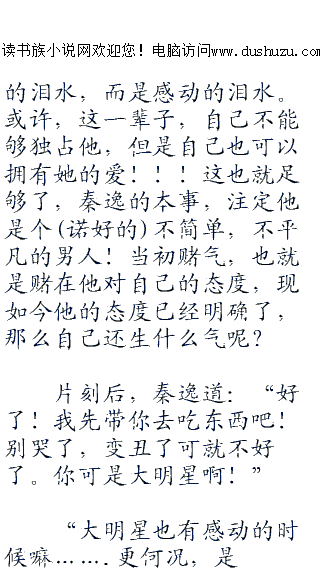 读书族小说网欢迎您！电脑访问www.dushuzu.com
的泪水，而是感动的泪水。
或许，这一辈子，自己不能
够独占他，但是自己也可以
拥有她的爱！！！这也就足
够了，秦逸的本事，注定他
是个(诺好的)不简单，不平
凡的男人！当初赌气，也就
是赌在他对自己的态度，现
如今他的态度已经明确了，
那么自己还生什么气呢？
片刻后，秦逸道：“好
了！我先带你去吃东西吧！
别哭了，变丑了可就不好
了。你可是大明星啊！”
“大明星也有感动的时
候嘛…….更何况，是